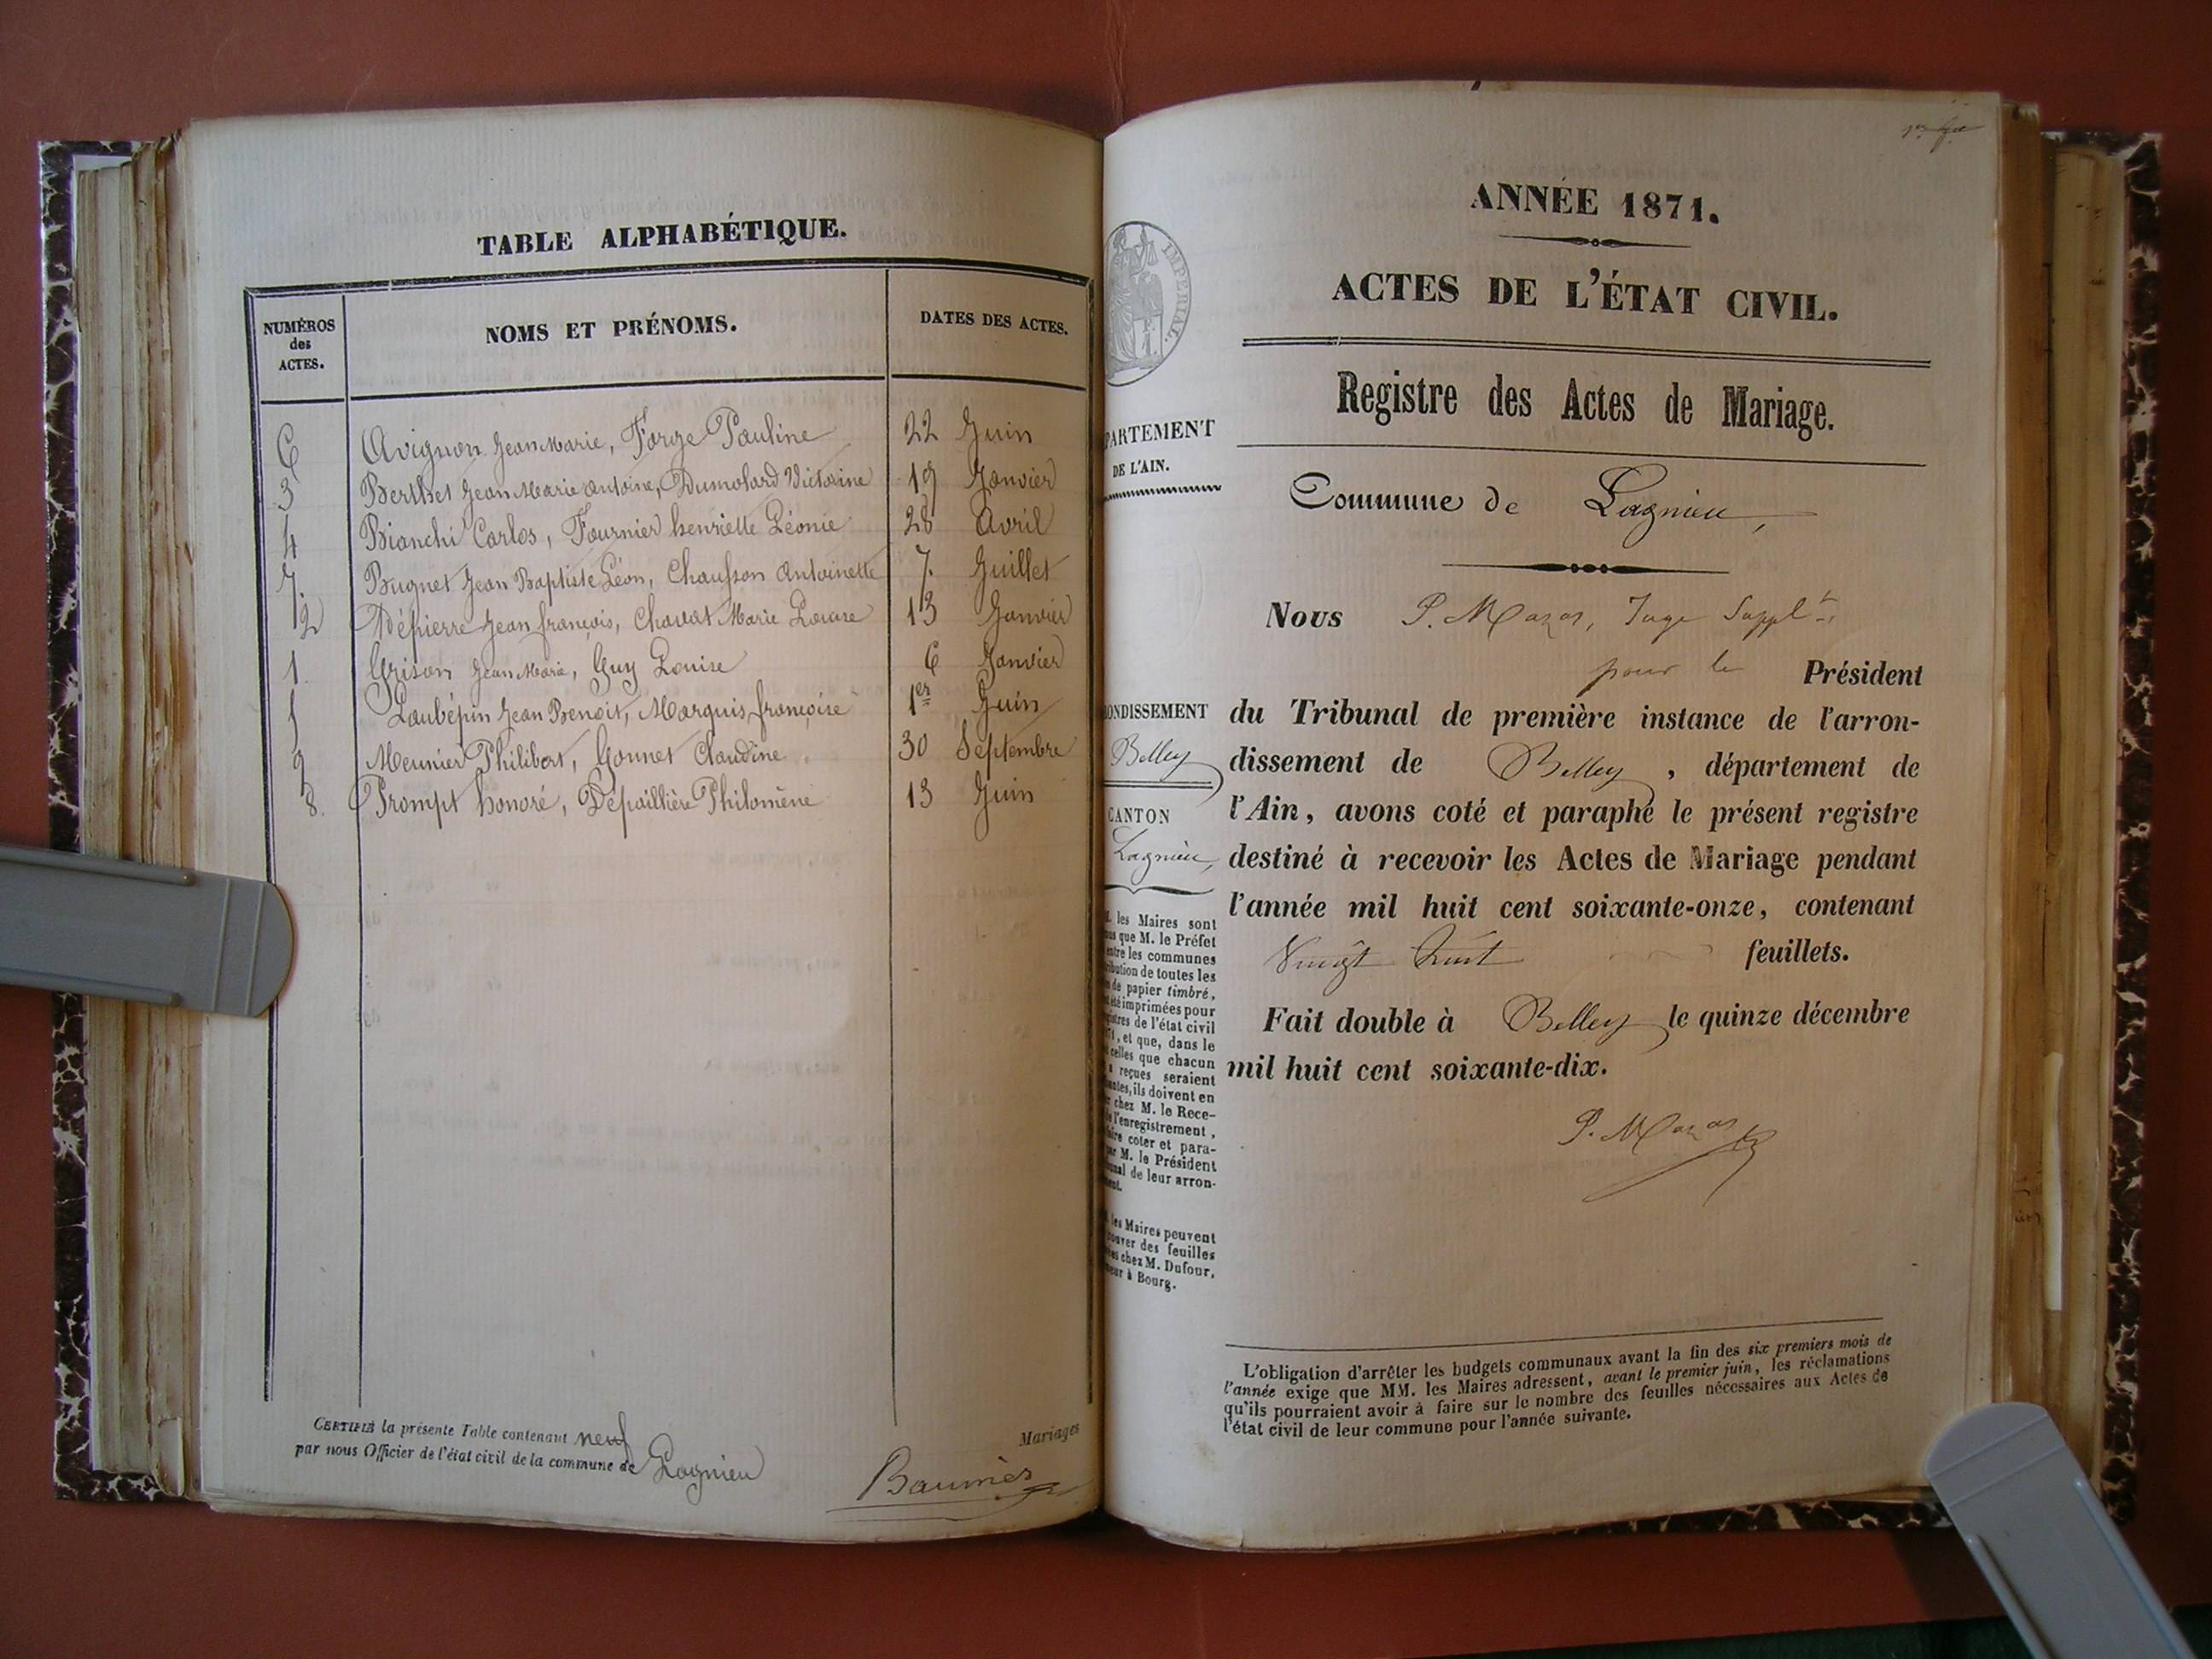 TABLE ALPHABÉTIQUE.
NUMÉROS des ACTES. NOMS ET PRÉNOMS. DATES DES ACTES.
6 Avignon Jean Marie, Forge Pauline 22 Juin
3 Berthet Jean Marie Antoine, Dumolard Victorine 19 Janvier
4 Bianchi Carlos, Fournier henriette Léonie 28 Avril
7. Bugnet Jean Baptiste Léon, Chausson Antoinette 7. Juillet
2 Dépierre Jean françois, Chavat Marie Louise 13 Janvier
1. Grison Jean Marie, Guy Louise 6 Janvier
5 Laubépin Jean Benoit, Marquis françoise 1er Juin
9 Meunier Philibert, Gonnet Claudine 30 Septembre
8. Prompt honoré, Dépaillière Philomène 13 Juin
CERTIFIÉ la présente Table contenant neuf Mariages
par nous Officier de l'état civil de la commune de Lagnieu
ANNÉE 1871.
ACTES DE L'ÉTAT CIVIL.
IMPERIAL.
Registre des Actes de Mariage.
PARTEMENT
DE L'AIN.
Commune de Lagnieu,
Nous P. Mazas, Juge Supplt,
pour le Président
ONDISSEMENT
Belley
CANTON
Lagnieu,
du Tribunal de première instance de l'arron-
dissement de Belley, département de
l'Ain, avons coté et paraphé le présent registre
destiné à recevoir les Actes de Mariage pendant
l'année mil huit cent soixante-onze, contenant
Vingt huit feuillets.
Fait double à Belley le quinze décembre
mil huit cent soixante-dix.
P. Mazas
les Maires sont
que M. le Préfet
entre les communes
ibution de toutes les
de papier timbré,
été imprimées pour
istres de l'état civil
, et que, dans le
celles que chacun
reçues seraient
antes, ils doivent en
chez M. le Rece-
l'enregistrement,
aire coter et para-
M. le Président
unal de leur arron-
ment.
les Maires peuvent
ouver des feuilles
chez M. Dufour,
meur à Bourg.
L'obligation d'arrêter les budgets communaux avant la fin des six premiers mois de
l'année exige que MM. les Maires adressent, avant le premier juin, les réclamations
qu'ils pourraient avoir à faire sur le nombre des feuilles nécessaires aux Actes de
l'état civil de leur commune pour l'année suivante.